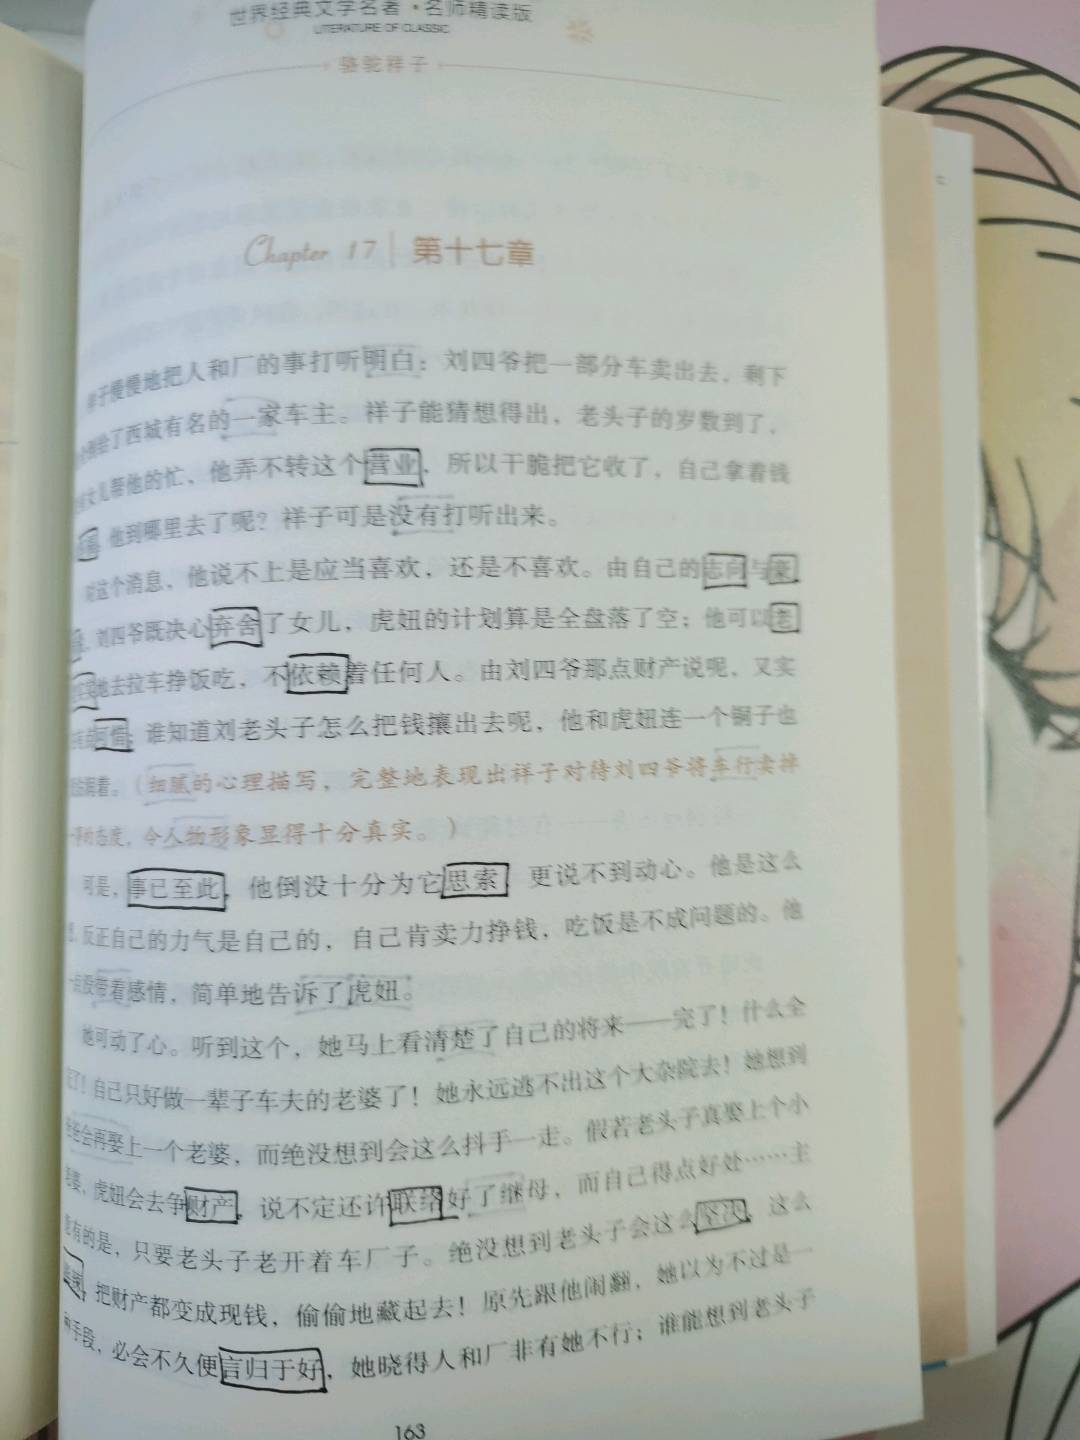 世界经典文学名著·名师精读版
LITERATURE OF CLASSIC
骆驼祥子
Chapter 17 第十七章
祥子慢慢地把人和厂的事打听明白：刘四爷把一部分车卖出去，剩下
倒给了西城有名的一家车主。祥子能猜想得出，老头子的岁数到了，
女儿帮他的忙，他弄不转这个营业，所以干脆把它收了，自己拿着钱
他到哪里去了呢？祥子可是没有打听出来。
对这个消息，他说不上是应当喜欢，还是不喜欢。由自己的志向与豪
刘四爷既决心弃舍了女儿，虎妞的计划算是全盘落了空；他可以老
地去拉车挣饭吃，不依赖着任何人。由刘四爷那点财产说呢，又实
可惜；谁知道刘老头子怎么把钱攘出去呢，他和虎妞连一个铜子也
润着。（细腻的心理描写，完整地表现出祥子对待刘四爷将车行卖掉
的态度，令人物形象显得十分真实。）
可是，事已至此，他倒没十分为它思索，更说不到动心。他是这么
，反正自己的力气是自己的，自己肯卖力挣钱，吃饭是不成问题的。他
一点没带着感情，简单地告诉了虎妞。
她可动了心。听到这个，她马上看清楚了自己的将来——完了！什么全
完了！自己只好做一辈子车夫的老婆了！她永远逃不出这个大杂院去！她想到
爸爸会再娶上一个老婆，而绝没想到会这么抖手一走。假若老头子真娶上个小
老婆，虎妞会去争财产，说不定还许联络好了继母，而自己得点好处……主
意有的是，只要老头子老开着车厂子。绝没想到老头子会这么坚决，这么
，把财产都变成现钱，偷偷地藏起去！原先跟他闹翻，她以为不过是一
种手段，必会不久便言归于好，她晓得人和厂非有她不行；谁能想到老头子
163